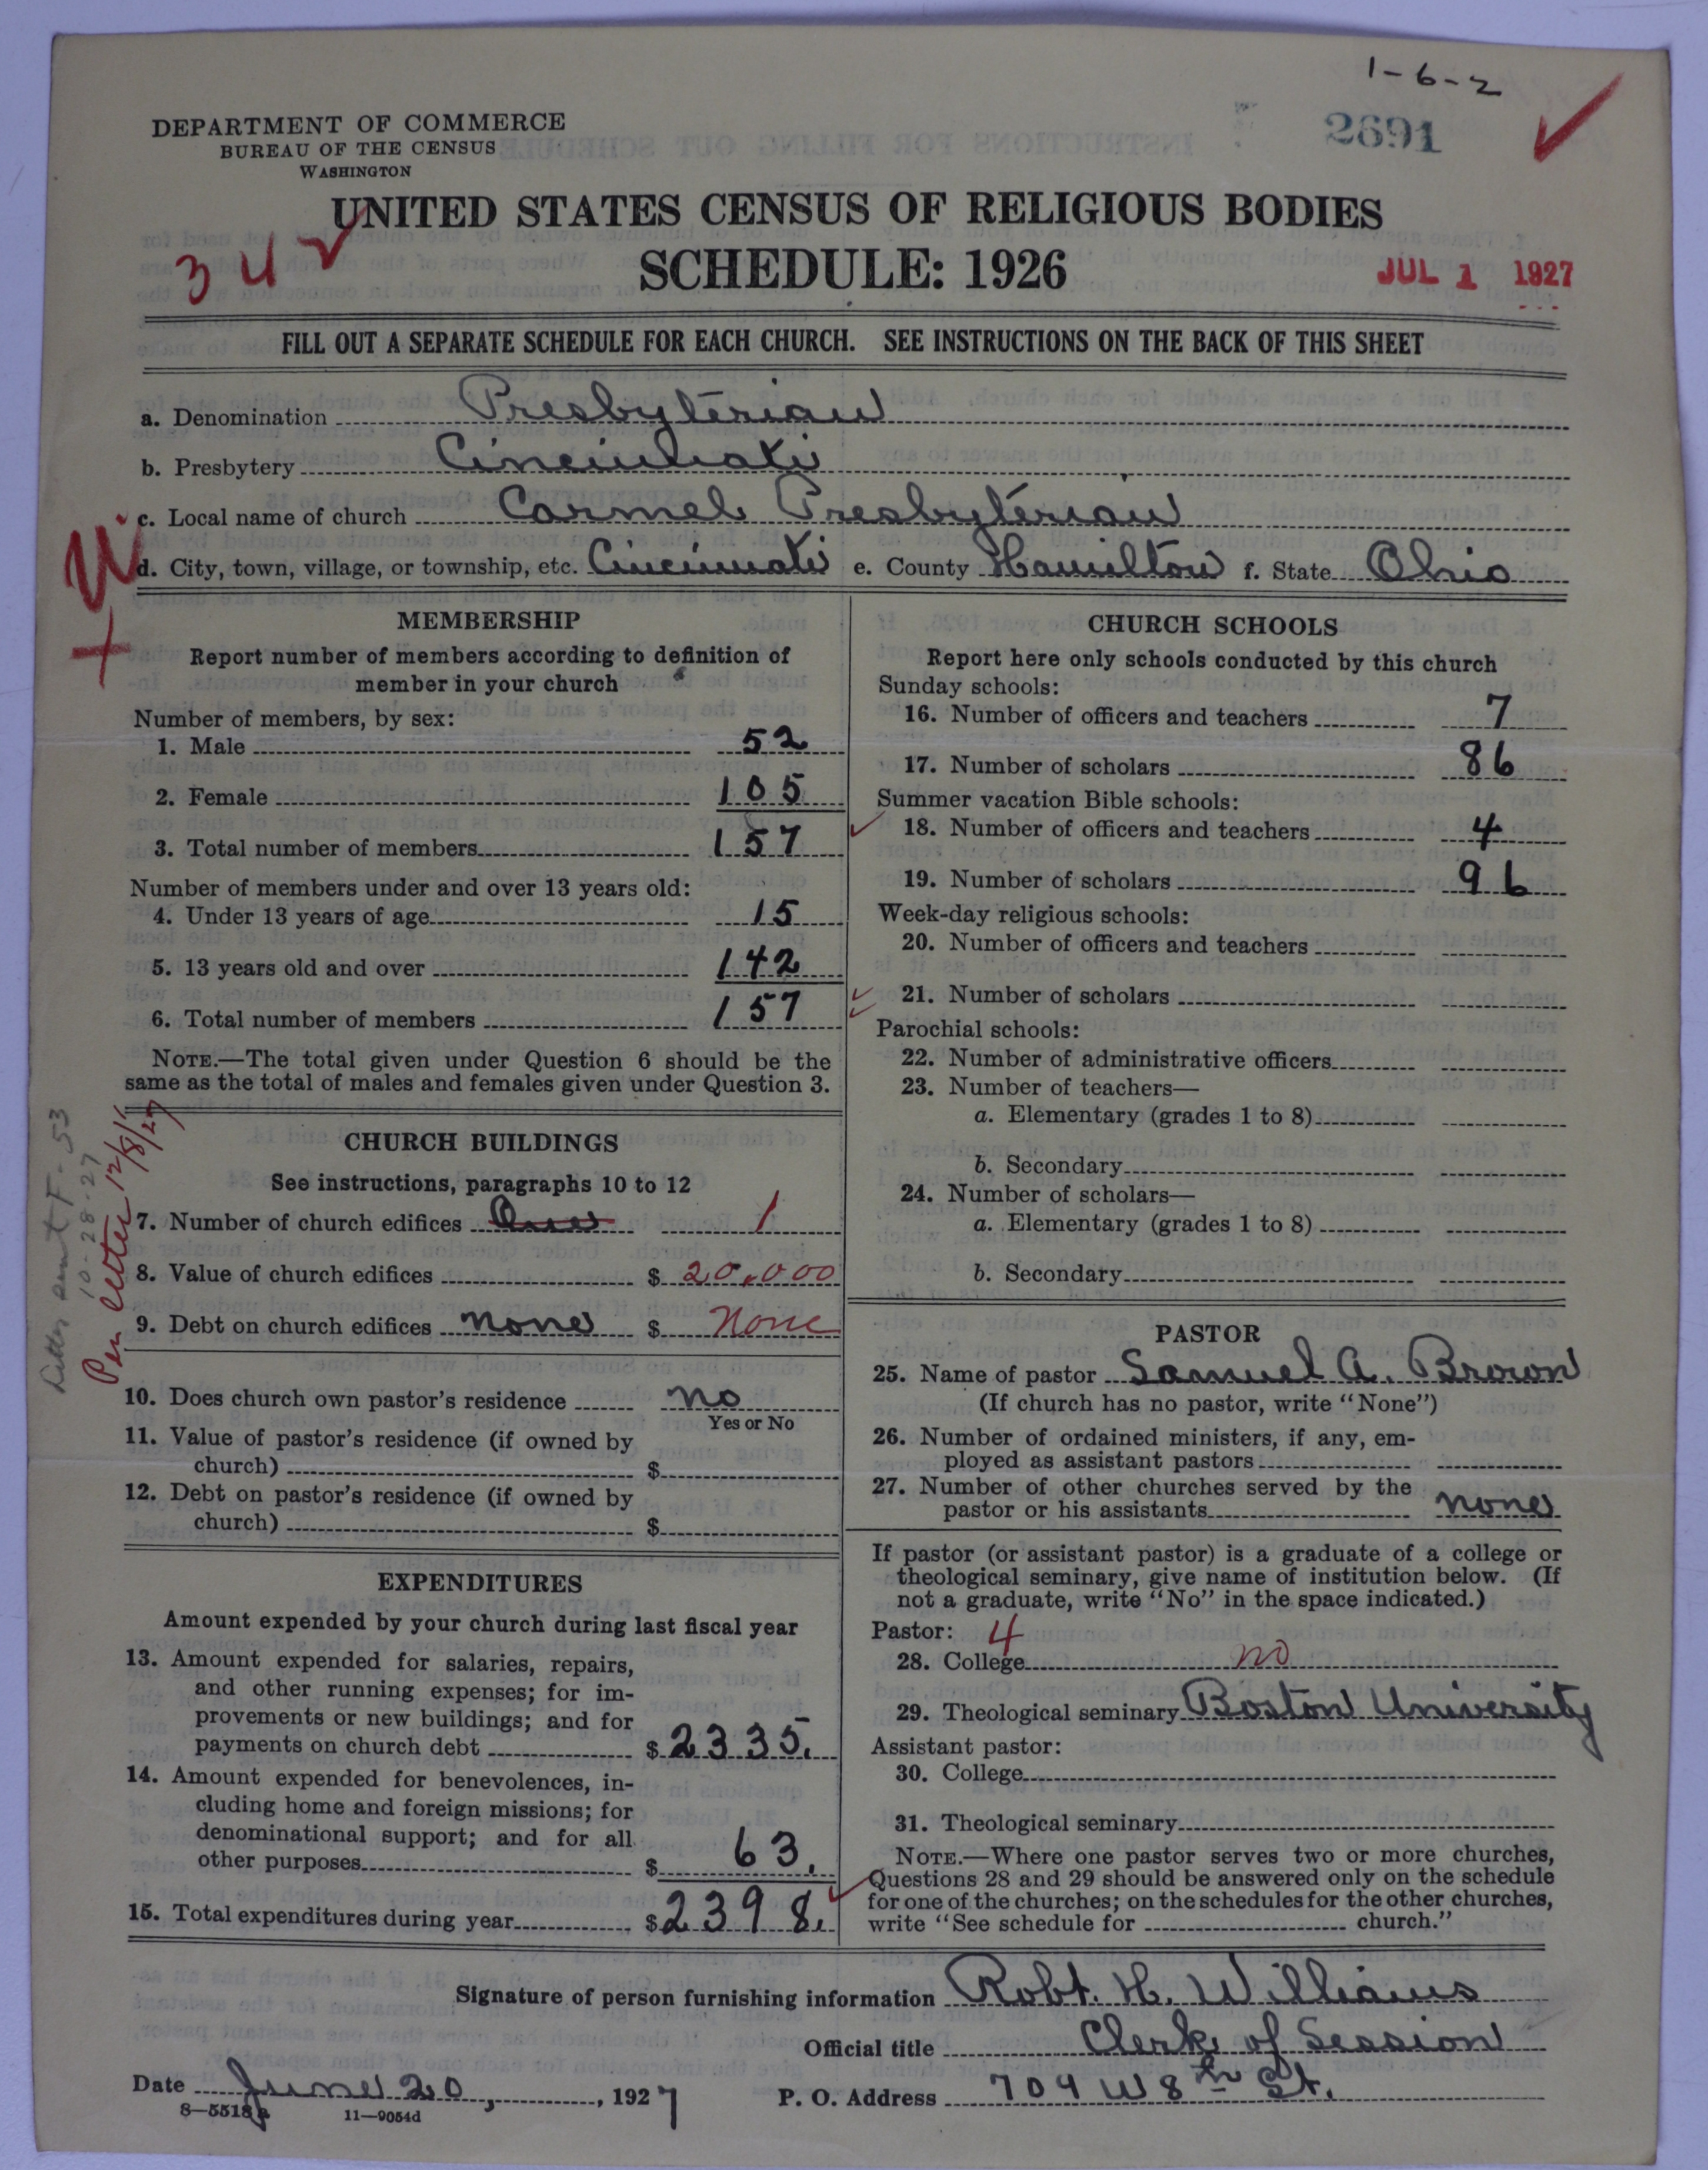 1-6-2
2691
DEPARTMENT OF COMMERCE
BUREAU OF THE CENSUS
WASHINGTON
UNITED STATES CENSUS OF RELIGIOUS BODIES
SCHEDULE: 1926
34
JUL 1 1927
FILL OUT A SEPARATE SCHEDULE FOR EACH CHURCH. SEE INSTRUCTIONS ON THE BACK OF THIS SHEET
a. Denomination Presbyterian
b. Presbytery Cincinnati
c. Local name of church Carmel Presbyterian
d. City, town, village, or township, etc. Cincinnati e. County Hamilton f. State Ohio
MEMBERSHIP
Report number of members according to definition of
member in your church
Number of members, by sex:
1. Male 52
2. Female 105
3. Total number of members 157
Number of members under and over 13 years old:
4. Under 13 years of age 15
5. 13 years old and over 142
6. Total number of members 157
NOTE.—The total given under Question 6 should be the
same as the total of males and females given under Question 3.
CHURCH BUILDINGS
See instructions, paragraphs 10 to 12
7. Number of church edifices One 1
8. Value of church edifices $ 20,000
9. Debt on church edifices none $ None
10. Does church own pastor's residence no
Yes or No
11. Value of pastor's residence (if owned by
church) $
12. Debt on pastor's residence (if owned by
church) $
Letter sent F-53
10-28-27
Per letter 12/8/27
EXPENDITURES
Amount expended by your church during last fiscal year
13. Amount expended for salaries, repairs,
and other running expenses; for im-
provements or new buildings; and for
payments on church debt $ 2335.
14. Amount expended for benevolences, in-
cluding home and foreign missions; for
denominational support; and for all
other purposes $ 63.
15. Total expenditures during year $ 2398.
CHURCH SCHOOLS
Report here only schools conducted by this church
Sunday schools:
16. Number of officers and teachers 7
17. Number of scholars 86
Summer vacation Bible schools:
18. Number of officers and teachers 4
19. Number of scholars 96
Week-day religious schools:
20. Number of officers and teachers
21. Number of scholars
Parochial schools:
22. Number of administrative officers
23. Number of teachers—
a. Elementary (grades 1 to 8)
b. Secondary
24. Number of scholars—
a. Elementary (grades 1 to 8)
b. Secondary
PASTOR
25. Name of pastor Samuel A. Brown
(If church has no pastor, write "None")
26. Number of ordained ministers, if any, em-
ployed as assistant pastors
27. Number of other churches served by the
pastor or his assistants none
If pastor (or assistant pastor) is a graduate of a college or
theological seminary, give name of institution below. (If
not a graduate, write "No" in the space indicated.)
Pastor: 4
28. College no
29. Theological seminary Boston University
Assistant pastor:
30. College
31. Theological seminary
NOTE.—Where one pastor serves two or more churches,
Questions 28 and 29 should be answered only on the schedule
for one of the churches; on the schedules for the other churches,
write "See schedule for church."
Signature of person furnishing information Robt. H. Williams
Official title Clerk of Session
Date June 20, 1927 P. O. Address 704 W 8th St.
8-5518a 11-9054d